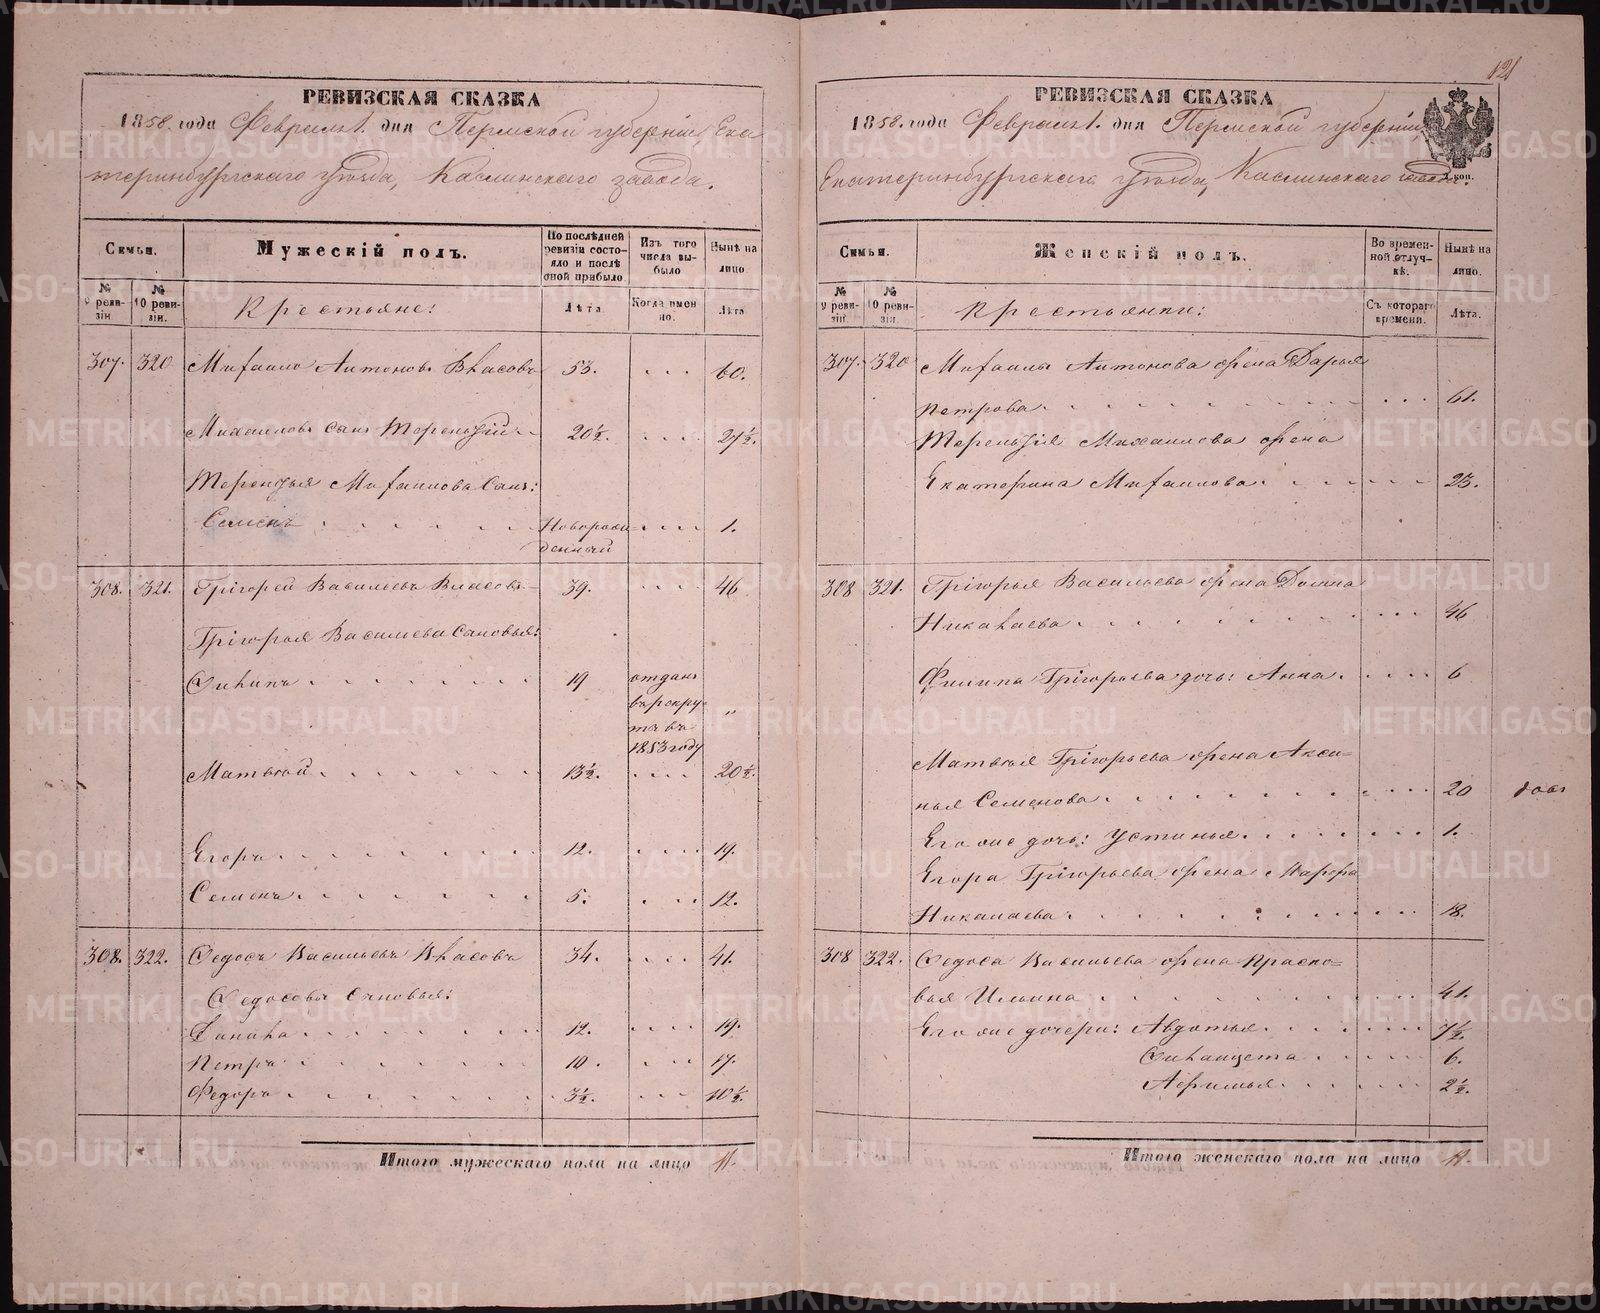 121
РЕВИЗСКАЯ СКАЗКА
1858. года Февраля 1. дня Пермской губерніи, Ека
теринбургскаго уѣзда, Каслинскаго завода.
Семьи.
Мужескій полъ.
По послѣдней ревизіи состояло и послѣ оной прибыло
Изъ того числа выбыло
Нынѣ на лицо
№ 9 ревизіи
№ 10 ревизіи.
Крестьяне:
Лѣта
Когда именно.
Лѣта
307. 320 Михаило Антоновъ Власовъ 53. 60.
Михаиловъ сынъ Терентій 20½. 27½.
Терентья Михаилова сынъ:
Семенъ Новорож
денный 1.
308. 321. Грігорей Васильевъ Власовъ 39. 46
Грігорья Васильева сыновья:
Филипъ 19 отданъ
въ рекру
ты въ
1853 году "
Матвѣй 13½. 20½.
Егоръ 12. 19.
Семенъ 5. 12.
308. 322. Федосъ Васильевъ Власовъ 34. 41.
Федосовы сыновья:
Данила 12. 19.
Петръ 10. 17.
Федоръ 3½. 10½.
Итого мужескаго пола на лицо 11.
РЕВИЗСКАЯ СКАЗКА
1858. года Февраля 1. дня Пермской губерніи,
Екатеринбургскаго уѣзда, Каслинскаго завода.
коп.
Семьи.
Женскій полъ.
Во временной отлучкѣ.
Нынѣ на лицо.
№ 9 ревизіи.
№ 10 ревизіи.
Крестьянки:
Съ котораго времени.
Лѣта.
307. 320 Михаилы Антонова жена Дарья
Петрова 61.
Терентія Михаилова жена
Екатерина Михаилова 23.
308 321. Грігорья Васильева жена Домна
Николаева 46
Филипа Грігорьева дочь: Анна 6
Матвѣя Грігорьева жена Акси-
нья Семенова 20
Его же дочь: Устинья 1.
Егора Грігорьева жена Марфа
Николаева 18.
308 322. Федоса Васильева жена Праско-
вья Ильина 41.
Его же дочери: Авдотья 7½.
Филицета 6.
Афимья 2½.
Итого женскаго пола на лицо 11.
METRIKI.GASO-URAL.RU